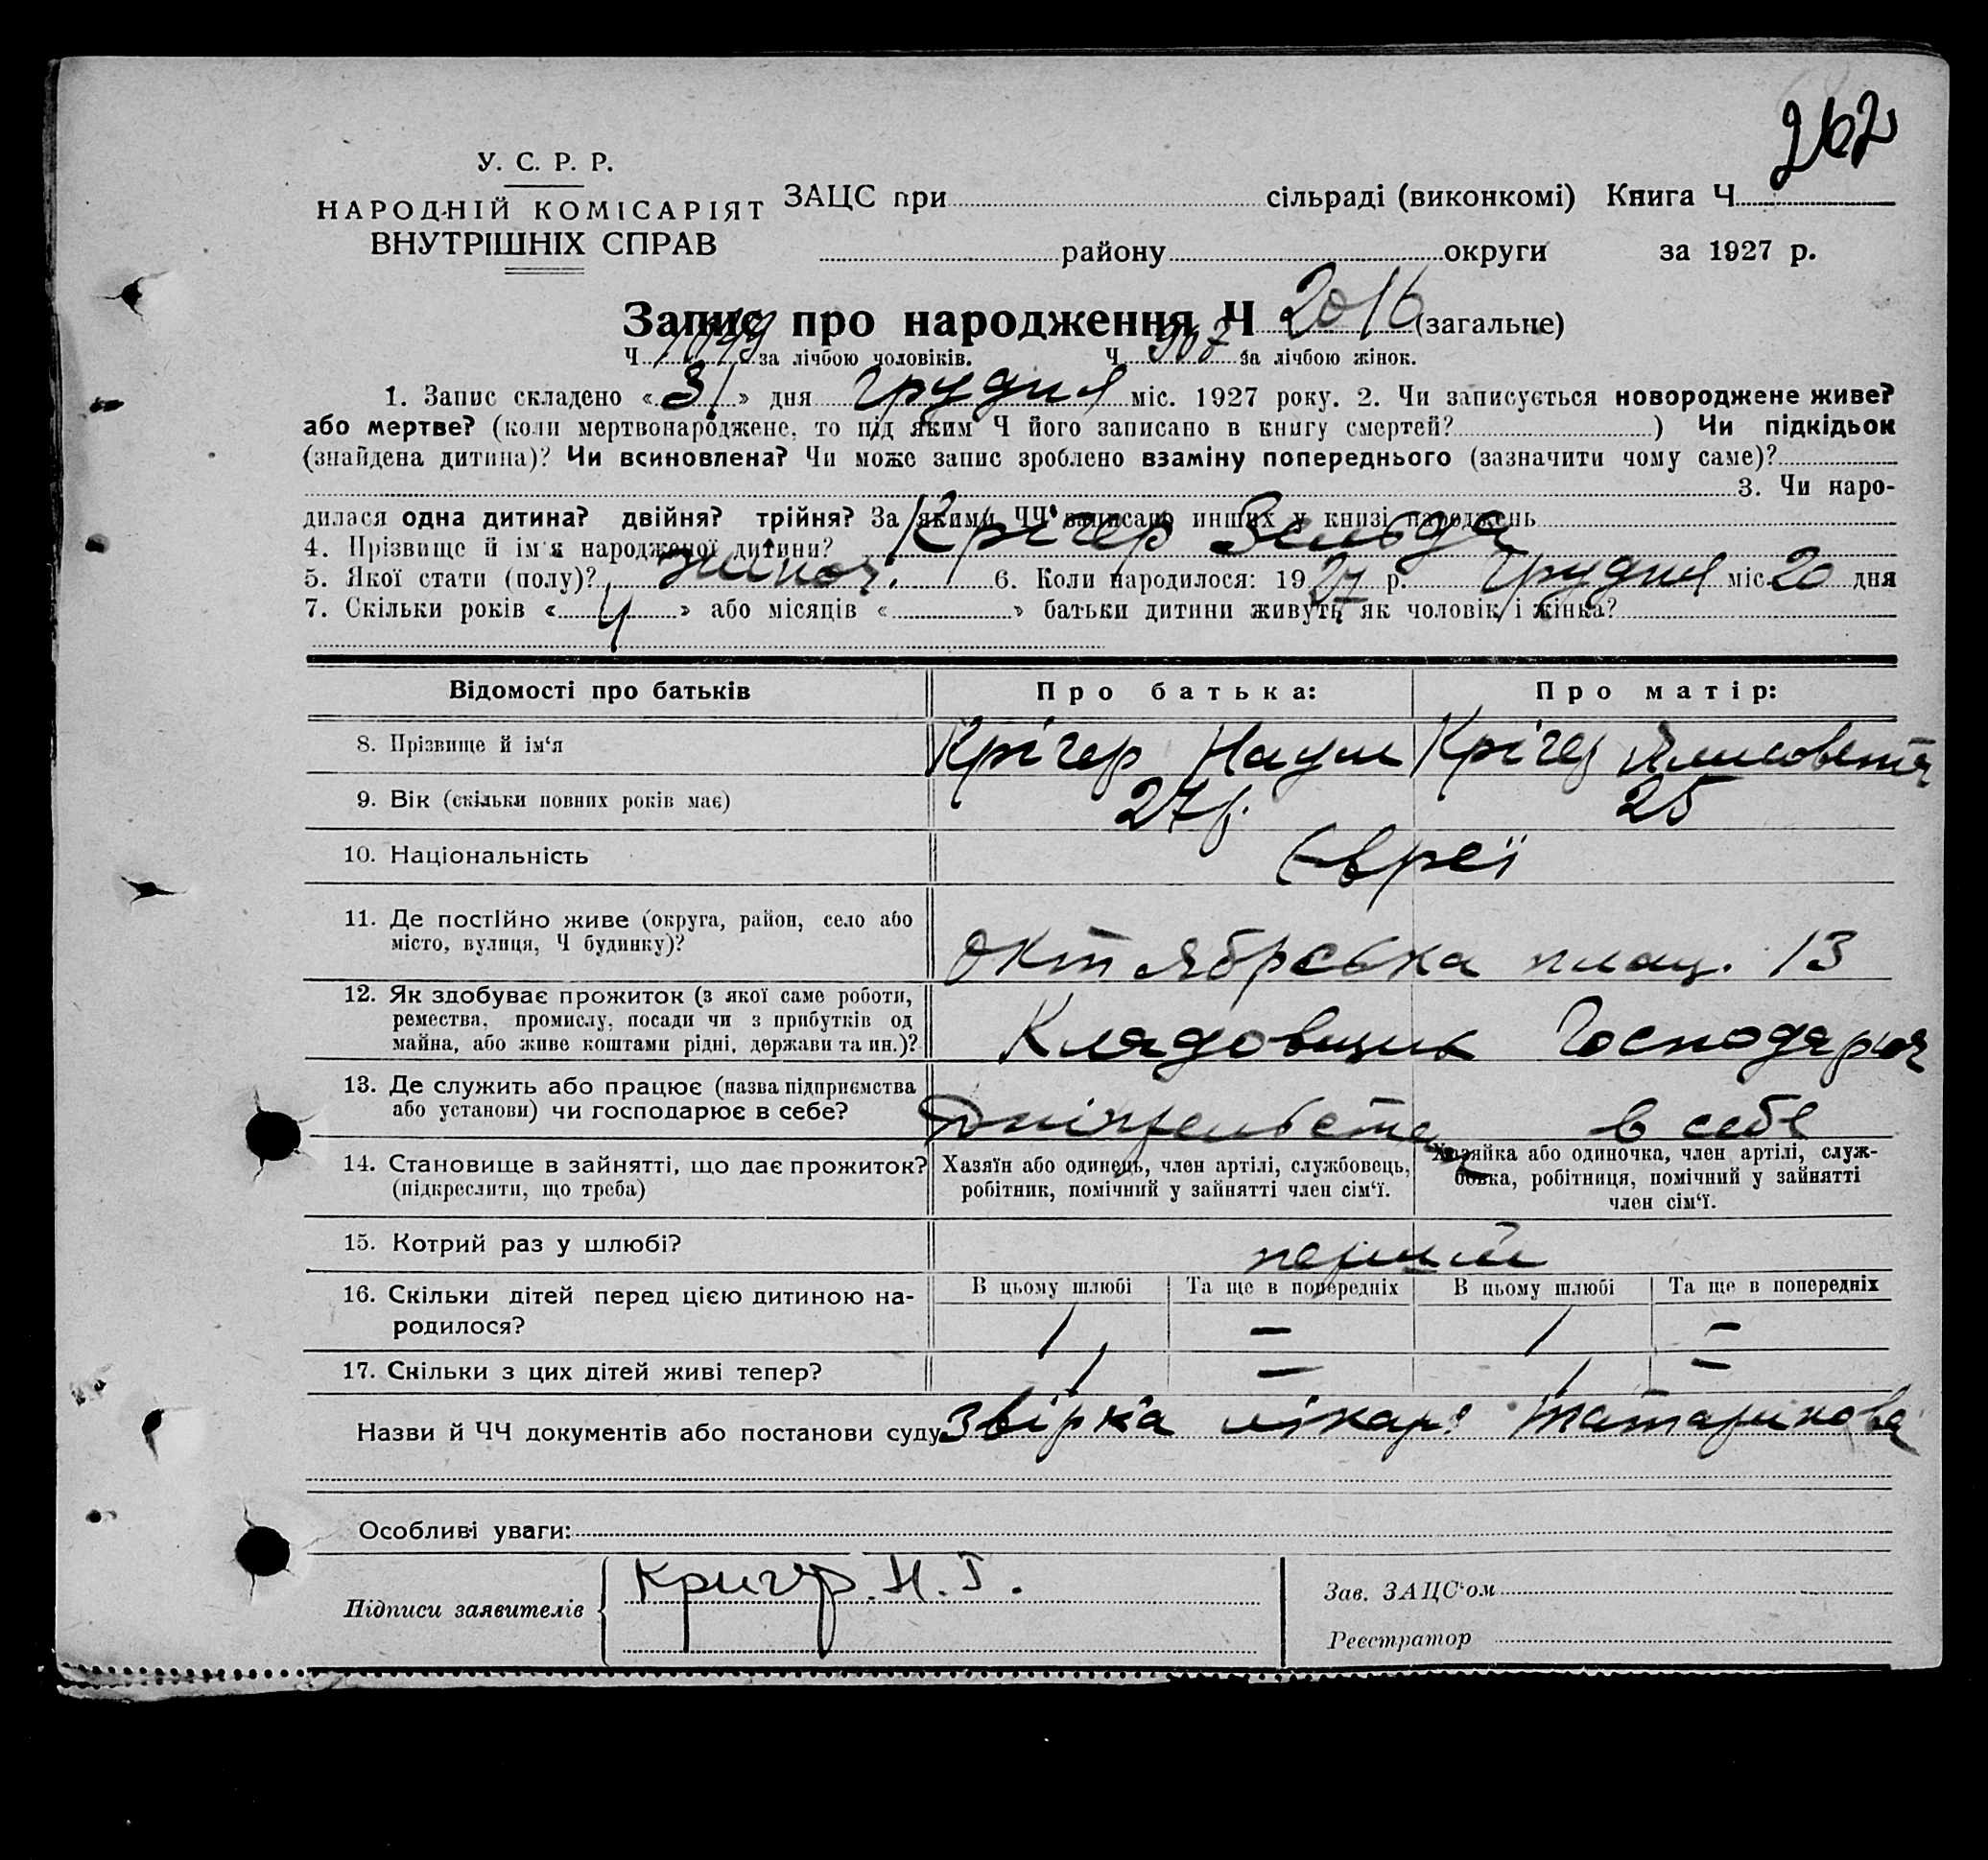 262
У. С. Р. Р.
НАРОДНІЙ КОМІСАРІЯТ
ВНУТРІШНІХ СПРАВ
ЗАЦС при сільраді (виконкомі) Книга Ч
району округи за 1927 р.
Запис про народження Ч 2016 (загальне)
Ч 1049 за лічбою чоловіків. Ч 967 за лічбою жінок.
1. Запис складено «31» дня Грудня міс. 1927 року. 2. Чи записується новороджене живе?
або мертве? (коли мертвонароджене, то під яким Ч його записано в книгу смертей? ) Чи підкідьок
(знайдена дитина)? Чи всиновлена? Чи може запис зроблено взаміну попереднього (зазначити чому саме)?
3. Чи наро-
дилася одна дитина? двійня? трійня? За якими ЧЧ записано инших у книзі народжень
4. Прізвище й ім'я народженої дитини? Крігер Зельда
5. Якої стати (полу)? жіноч. 6. Коли народилося: 1927 р. Грудня міс. 20 дня
7. Скільки років «4» або місяців « » батьки дитини живуть як чоловік і жінка?
Відомості про батьків Про батька: Про матір:
8. Прізвище й ім'я Крігер Наум Крігер
9. Вік (скільки повних років має) 27 р. 25
10. Національність Євреї
11. Де постійно живе (округа, район, село або
місто, вулиця, Ч будинку)?
Октябрська площ. 13
12. Як здобуває прожиток (з якої саме роботи,
ремества, промислу, посади чи з прибутків од
майна, або живе коштами рідні, держави та ин.)?
Клядовщик Господарює
13. Де служить або працює (назва підприємства
або установи) чи господарює в себе?
в себе
14. Становище в зайнятті, що дає прожиток?
(підкреслити, що треба)
Хазяїн або одинець, член артілі, службовець,
робітник, помічний у зайнятті член сім'ї.
Хазяйка або одиночка, член артілі, служ-
бовка, робітниця, помічний у зайнятті
член сім'ї.
15. Котрий раз у шлюбі? перший
16. Скільки дітей перед цією дитиною на-
родилося?
В цьому шлюбі Та ще в попередніх В цьому шлюбі Та ще в попередніх
1 – 1 –
17. Скільки з цих дітей живі тепер? 1 – 1 –
Назви й ЧЧ документів або постанови суду Звірка лікаря Татаринова
Особливі уваги:
Підписи заявителів Кригер. Н. Г.
Зав. ЗАЦС'ом
Реєстратор